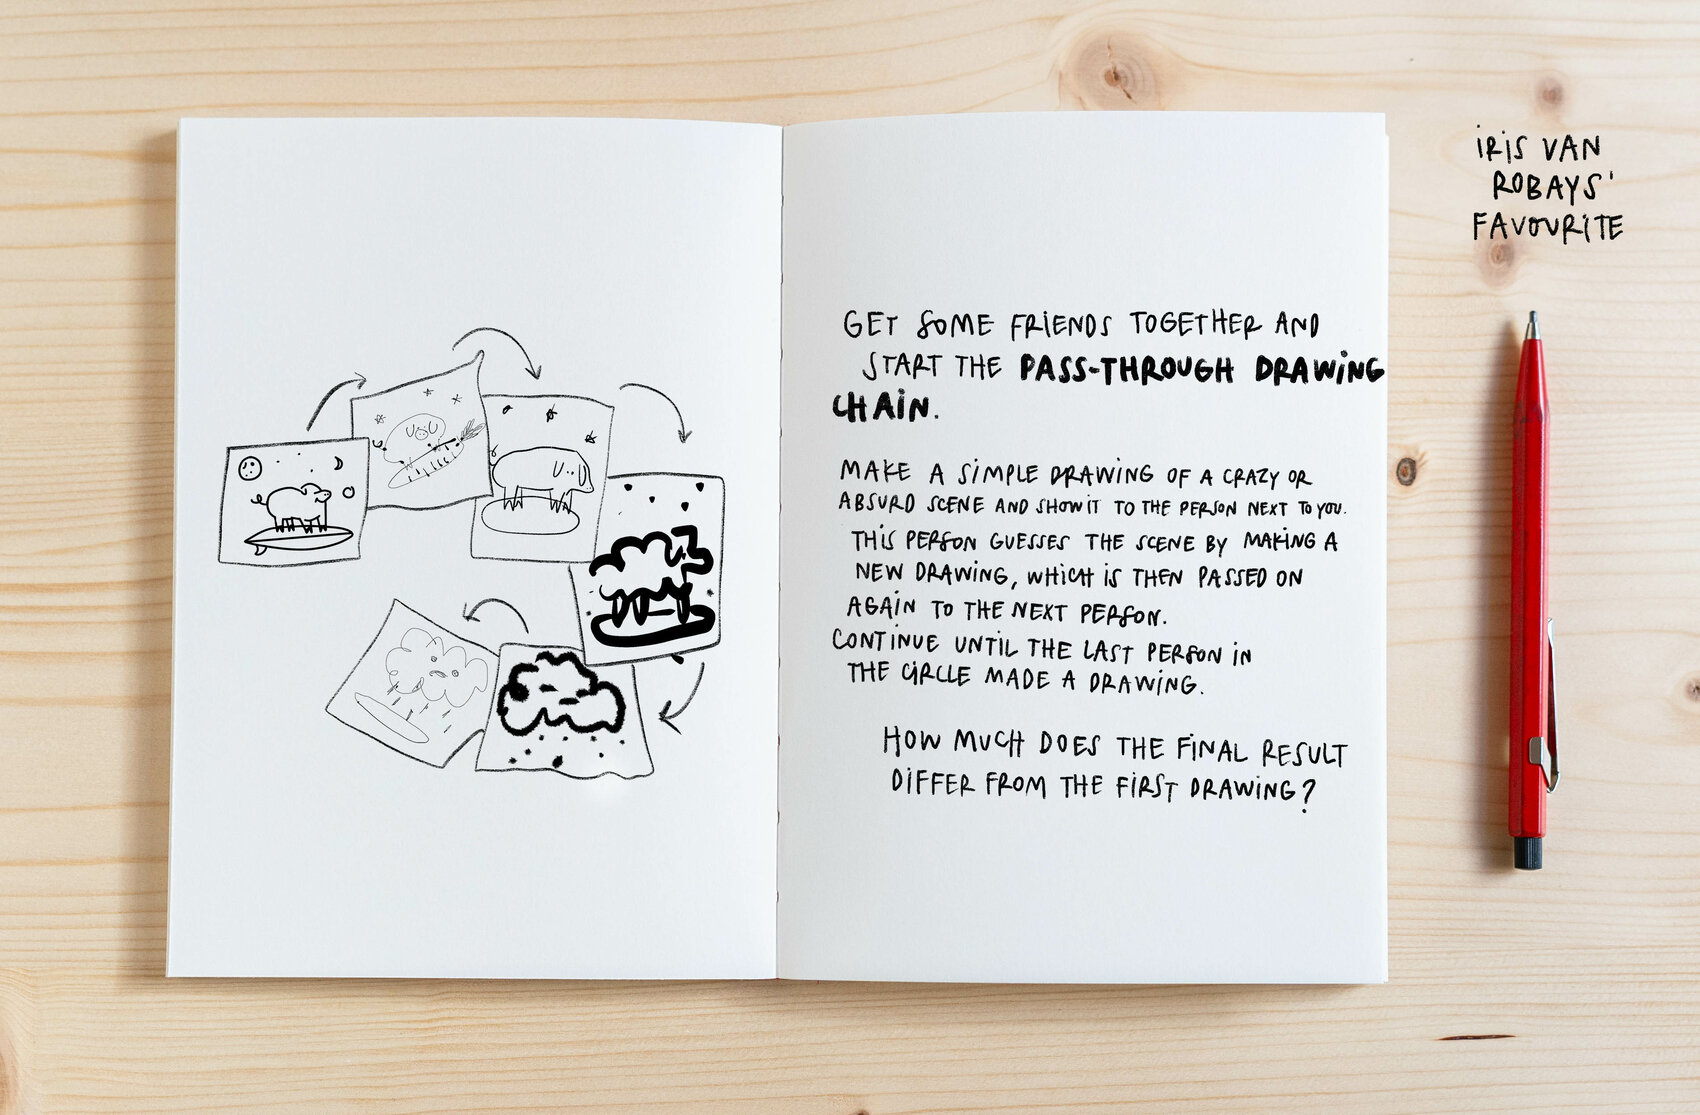 IRIS VAN
ROBAYS'
FAVOURITE
GET SOME FRIENDS TOGETHER AND
START THE PASS-THROUGH DRAWING
CHAIN.
MAKE A SIMPLE DRAWING OF A CRAZY OR
ABSURD SCENE AND SHOW IT TO THE PERSON NEXT TO YOU.
THIS PERSON GUESSES THE SCENE BY MAKING A
NEW DRAWING, WHICH IS THEN PASSED ON
AGAIN TO THE NEXT PERSON.
CONTINUE UNTIL THE LAST PERSON IN
THE CIRCLE MADE A DRAWING.
HOW MUCH DOES THE FINAL RESULT
DIFFER FROM THE FIRST DRAWING?